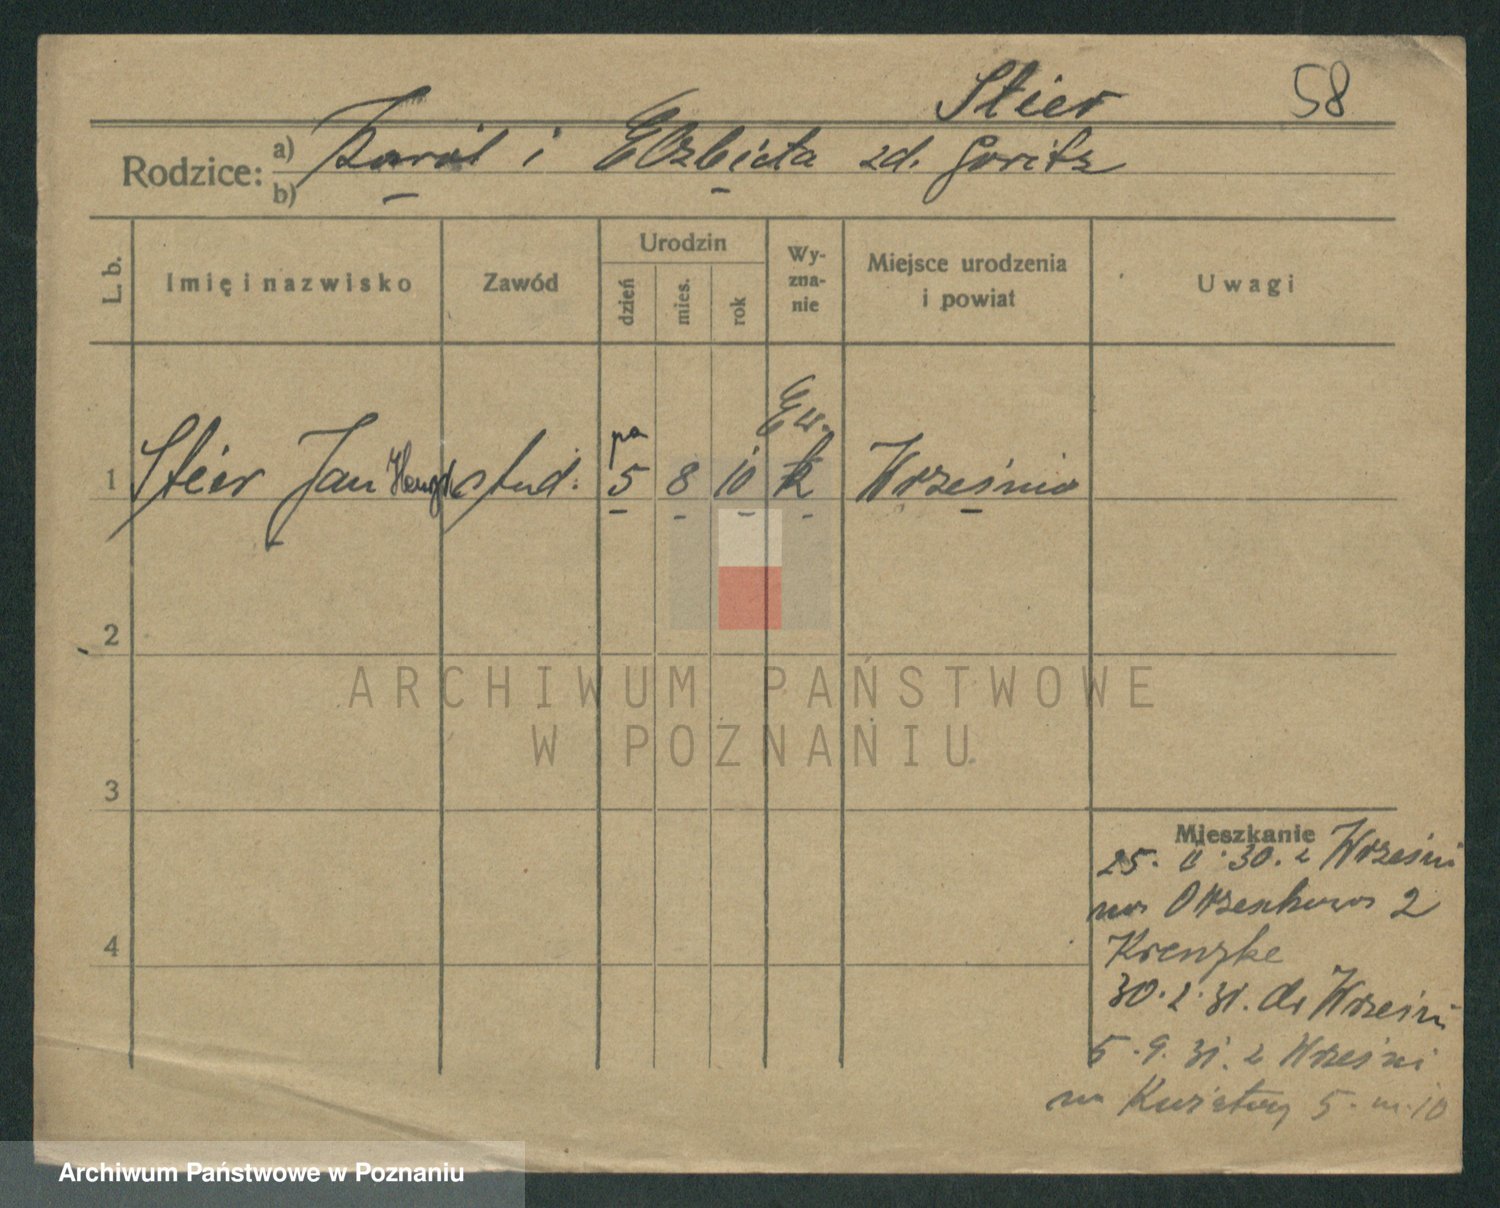 Stier 58
Rodzice: a) Karól i Elżbieta zd. Goritz
b)
L. b. Imię i nazwisko Zawód Urodzin dzień mies. rok Wy-zna-nie Miejsce urodzenia i powiat Uwagi
Ew.
pa
1 Stier Jan stud. 5 8 10 k Września
2
ARCHIWUM PAŃSTWOWE
W POZNANIU
3
Mieszkanie
25. 30. z Wrześni
na 2
Krenzke
30. 31. do Wrześni
5. 9. 31. z Wrześni
na 5. m. 10
4
Archiwum Państwowe w Poznaniu